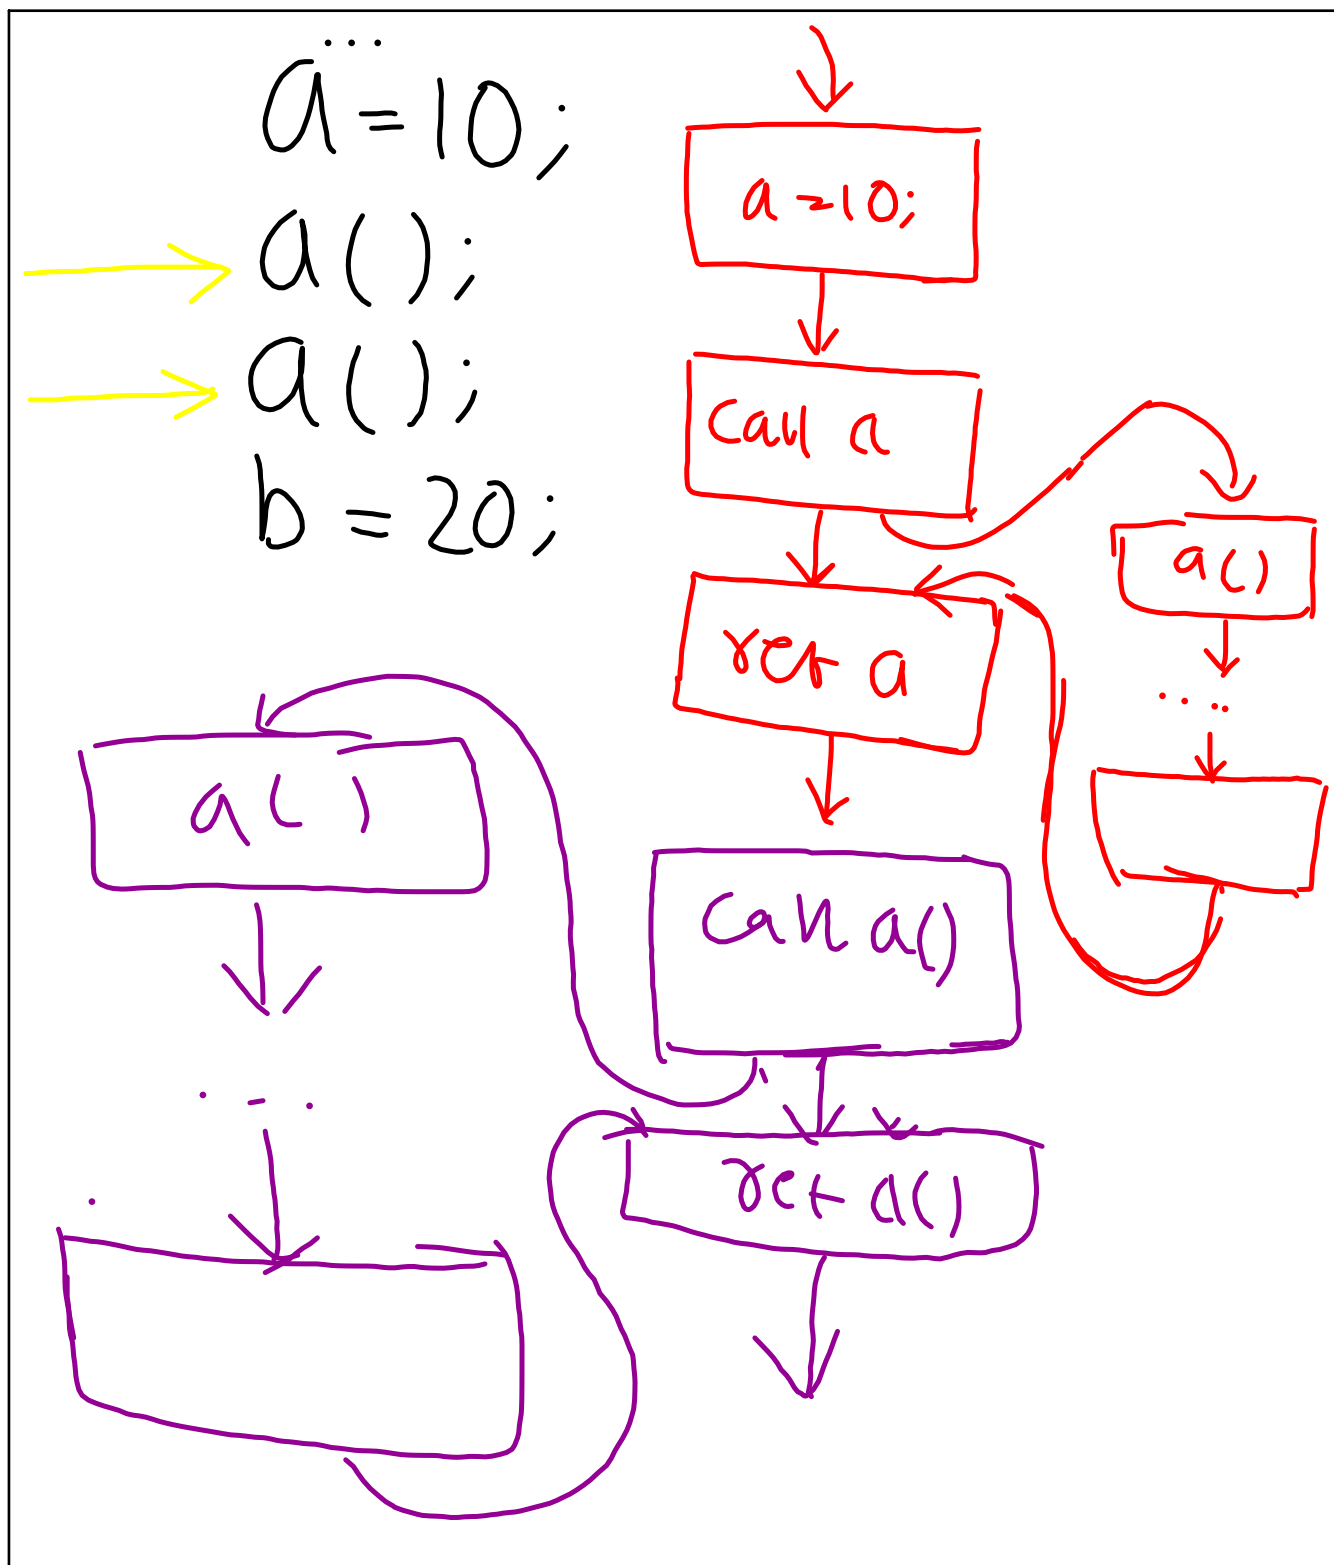 ...
a = 10;
a();
a();
b = 20;
a = 10;
call a
ret a
a()
....
call a()
ret a()
a()
...